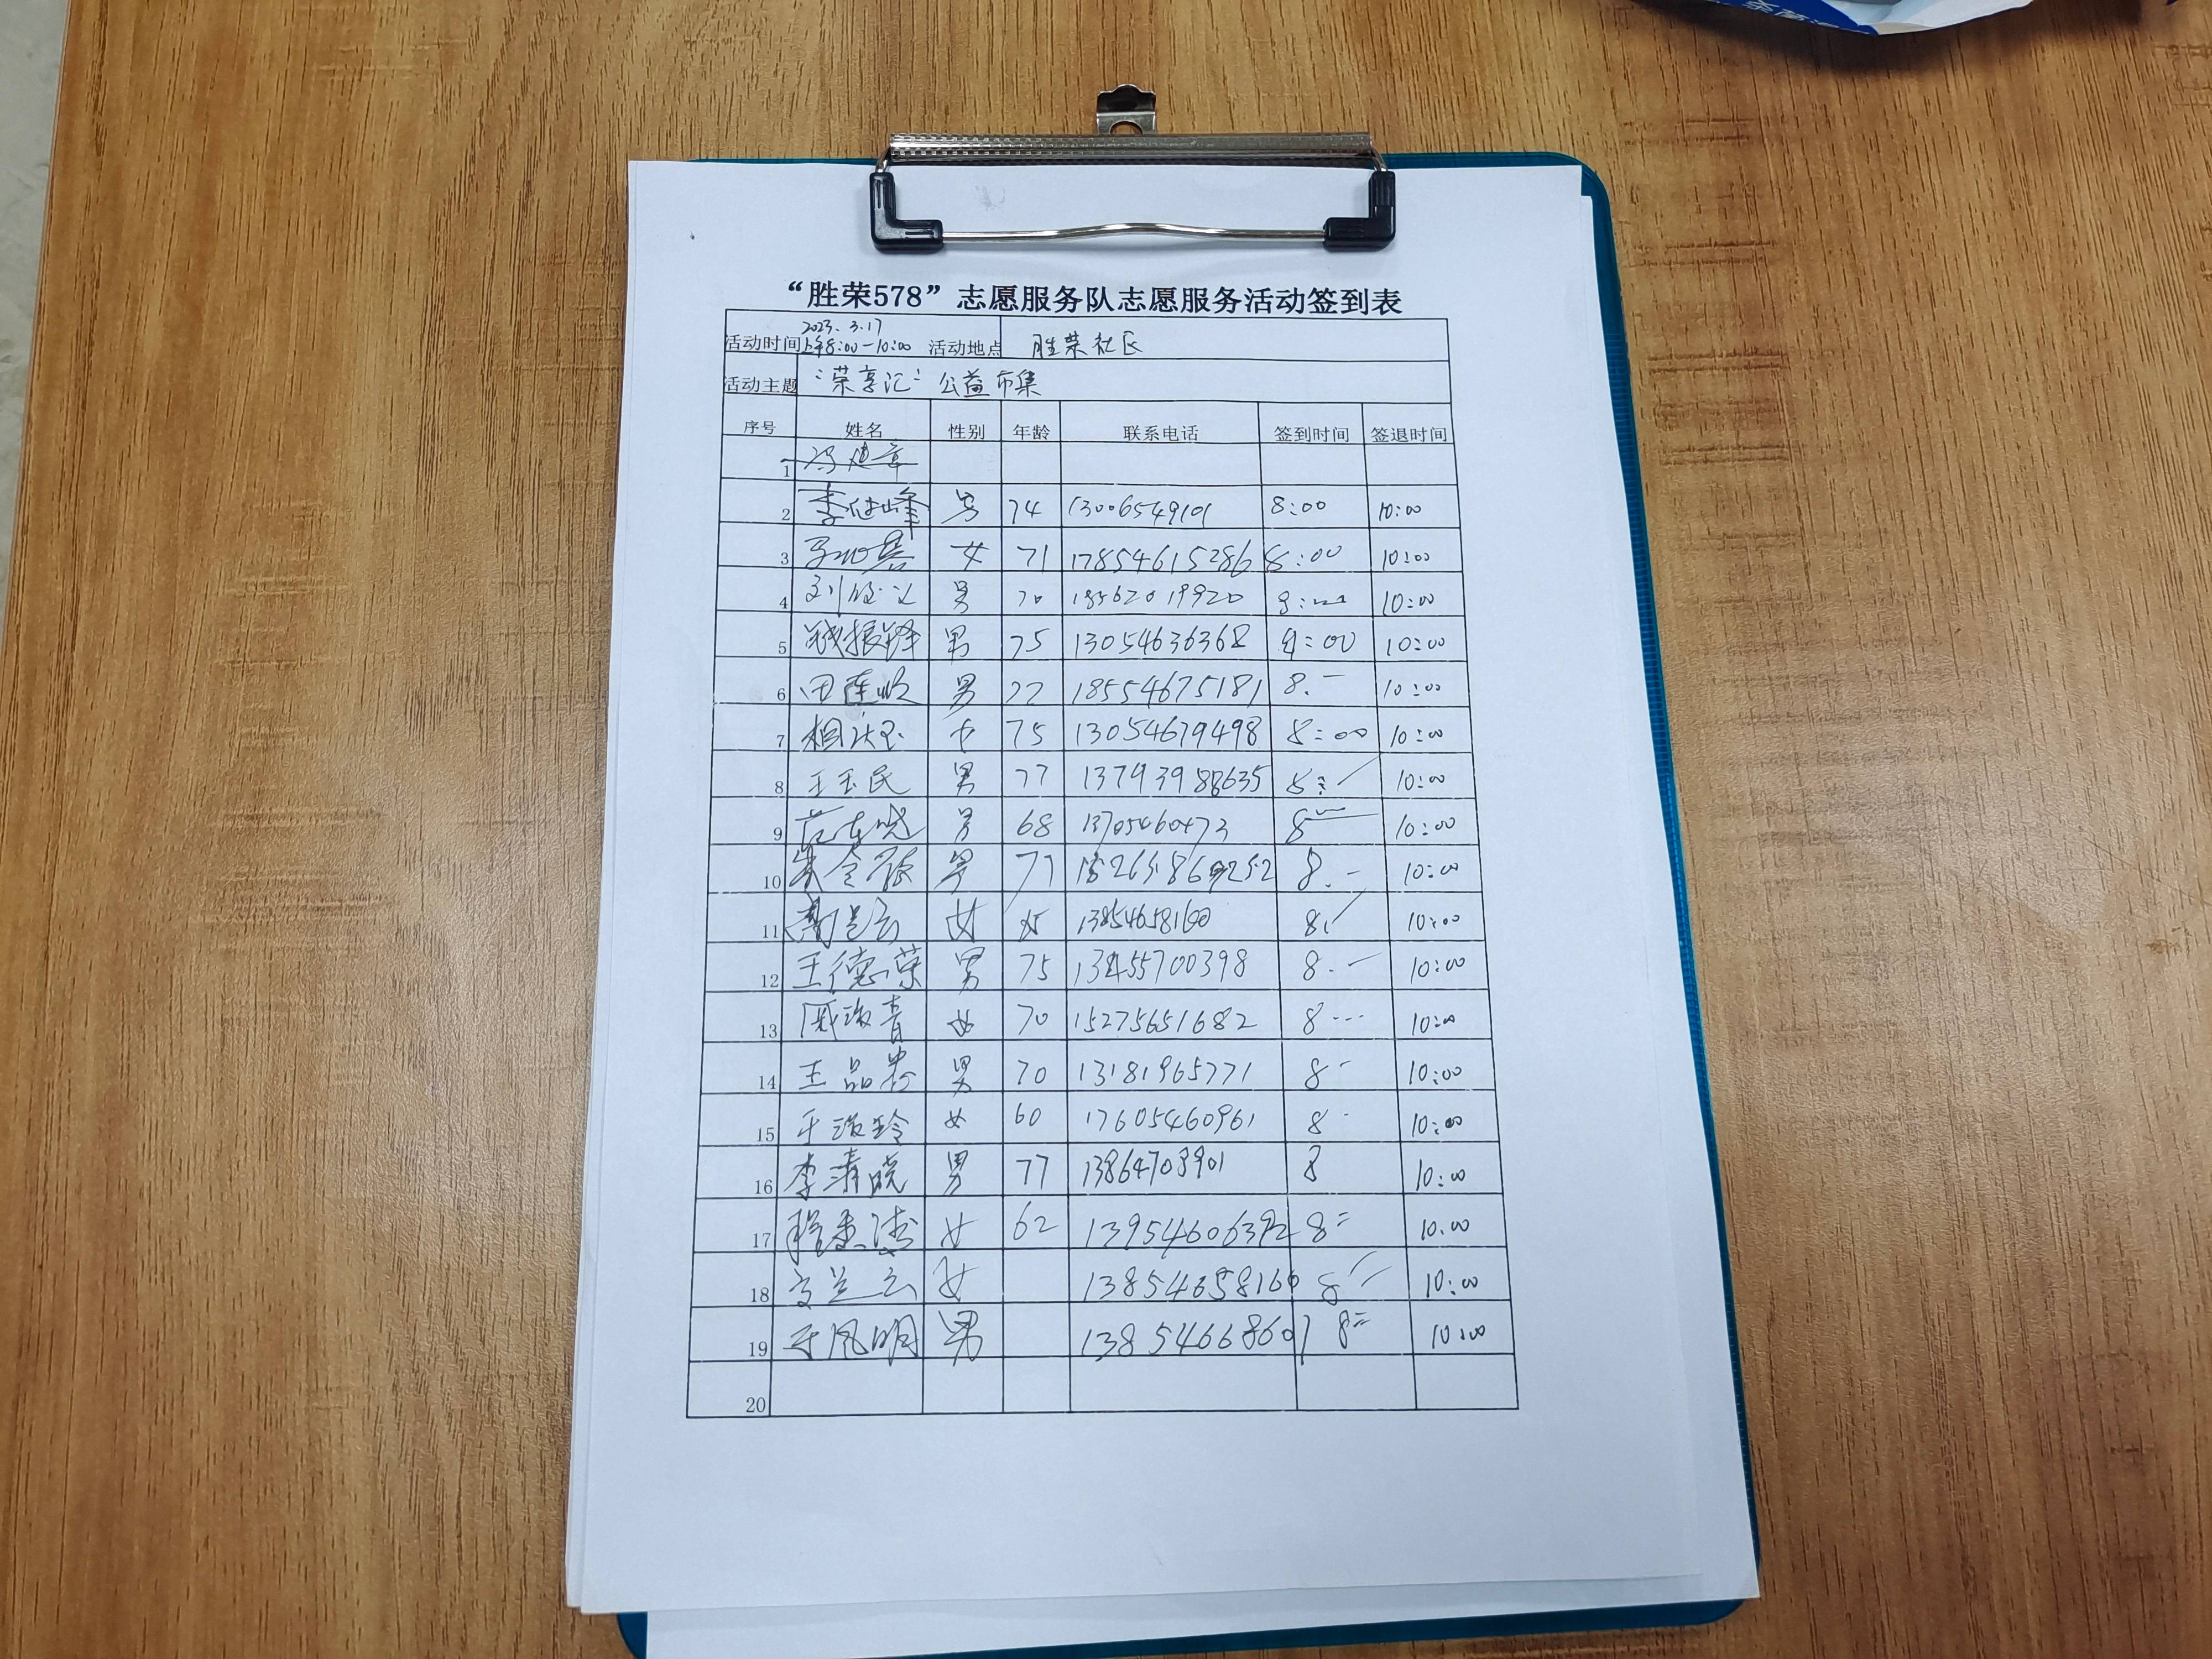 “胜荣578”志愿服务队志愿服务活动签到表
活动时间 2023.3.17 上午8:00-10:00 活动地点 胜荣社区
活动主题 “荣享汇” 公益市集
序号 姓名 性别 年龄 联系电话 签到时间 签退时间
1 冯建章
2 李继峰 男 74 13006549101 8:00 10:00
3 女 71 17854615286 8:00 10:00
4 男 70 18562019920 8:00 10:00
5 振铎 男 75 13054636368 8:00 10:00
6 田 男 77 18554675181 8:- 10:00
7 相 女 75 13054679498 8:00 10:00
8 王玉民 男 77 13793988635 8: 10:00
9 男 68 8 10:00
10 朱令 男 77 8.- 10:00
11 女 13854658160 8 10:00
12 王德荣 男 75 700398 8.- 10:00
13 淑青 女 70 15275651682 8 10:00
14 王品 男 70 13181965771 8 10:00
15 于淑玲 女 60 17605460961 8 10:00
16 李清晓 男 77 13864708901 8 10:00
17 程 女 62 13954606392 8= 10:00
18 兰云 女 13854658160 8 10:00
19 于凤明 男 13854668601 8= 10:00
20